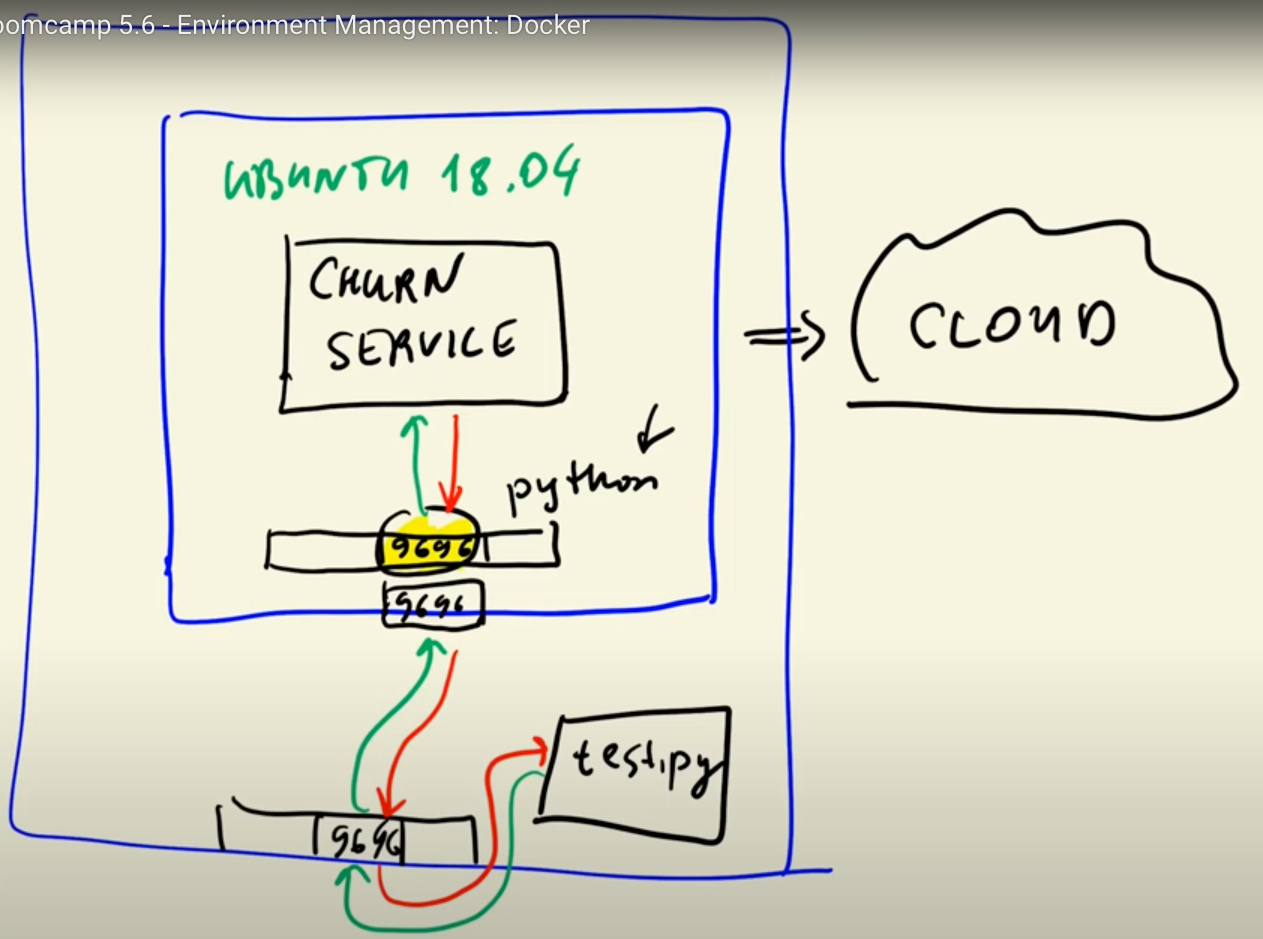 oomcamp 5.6 - Environment Management: Docker
UBUNTU 18.04
CHURN
SERVICE
CLOUD
python
9696
9696
test.py
9696